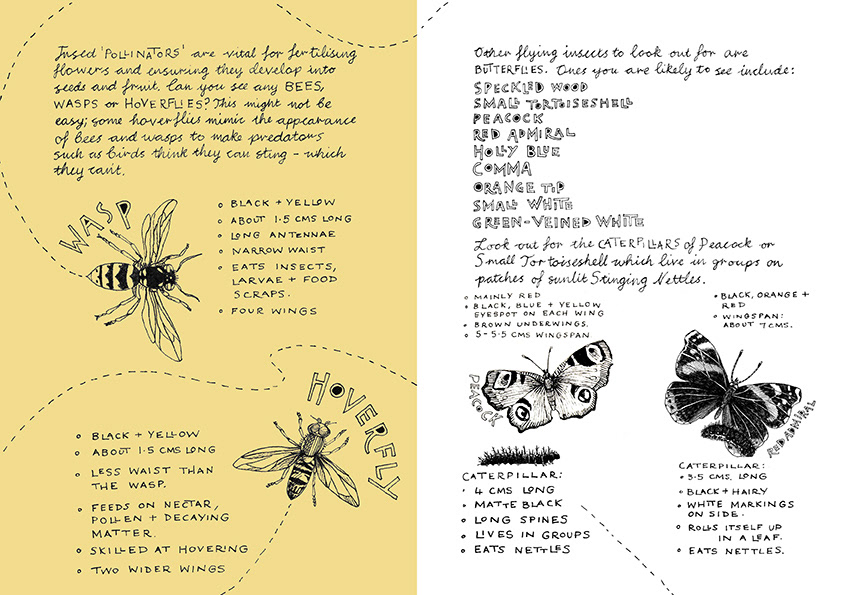 Insect 'POLLINATORS' are vital for fertilising
flowers and ensuring they develop into
seeds and fruit. Can you see any BEES,
WASPS or HOVERFLIES? This might not be
easy; some hoverflies mimic the appearance
of bees and wasps to make predators
such as birds think they can sting - which
they can't.
WASP
BLACK + YELLOW
ABOUT 1.5 CMS LONG
LONG ANTENNAE
NARROW WAIST
EATS INSECTS,
LARVAE + FOOD
SCRAPS.
FOUR WINGS
HOVERFLY
BLACK + YELLOW
ABOUT 1.5 CMS LONG
LESS WAIST THAN
THE WASP.
FEEDS ON NECTAR,
POLLEN + DECAYING
MATTER.
SKILLED AT HOVERING
TWO WIDER WINGS
Other flying insects to look out for are
BUTTERFLIES. Ones you are likely to see include:
SPECKLED WOOD
SMALL TORTOISESHELL
PEACOCK
RED ADMIRAL
HOLLY BLUE
COMMA
ORANGE TIP
SMALL WHITE
GREEN-VEINED WHITE
Look out for the CATERPILLARS of Peacock or
Small Tortoiseshell which live in groups on
patches of sunlit Stinging Nettles.
MAINLY RED
BLACK, BLUE + YELLOW
EYESPOT ON EACH WING
BROWN UNDERWINGS.
5-5.5 CMS WINGSPAN
PEACOCK
CATERPILLAR:
4 CMS LONG
MATTE BLACK
LONG SPINES
LIVES IN GROUPS
EATS NETTLES
BLACK, ORANGE +
RED
WINGSPAN:
ABOUT 7 CMS.
RED ADMIRAL
CATERPILLAR:
3.5 CMS. LONG
BLACK + HAIRY
WHITE MARKINGS
ON SIDE.
ROLLS ITSELF UP
IN A LEAF.
EATS NETTLES.